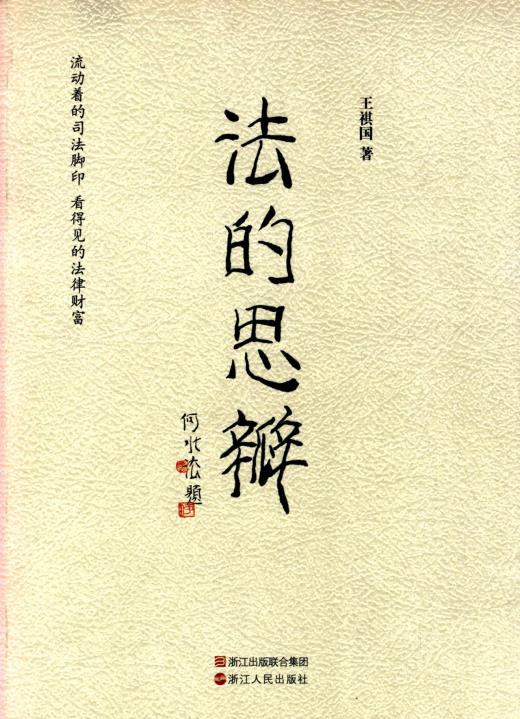 王祺国 著
法的思辨
何水法题
流动着的司法脚印 看得见的法律财富
浙江出版联合集团
浙江人民出版社